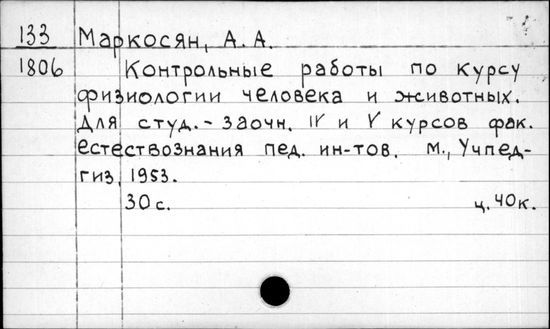 133 Маркосян, А. А.
1806 Контрольные работы по курсу
физиологии человека и животных.
Для студ.-заочн. IV и V курсов фак.
естествознания пед. ин-тов. М., Учпед-
гиз, 1953.
30 с. ц. 40 к.